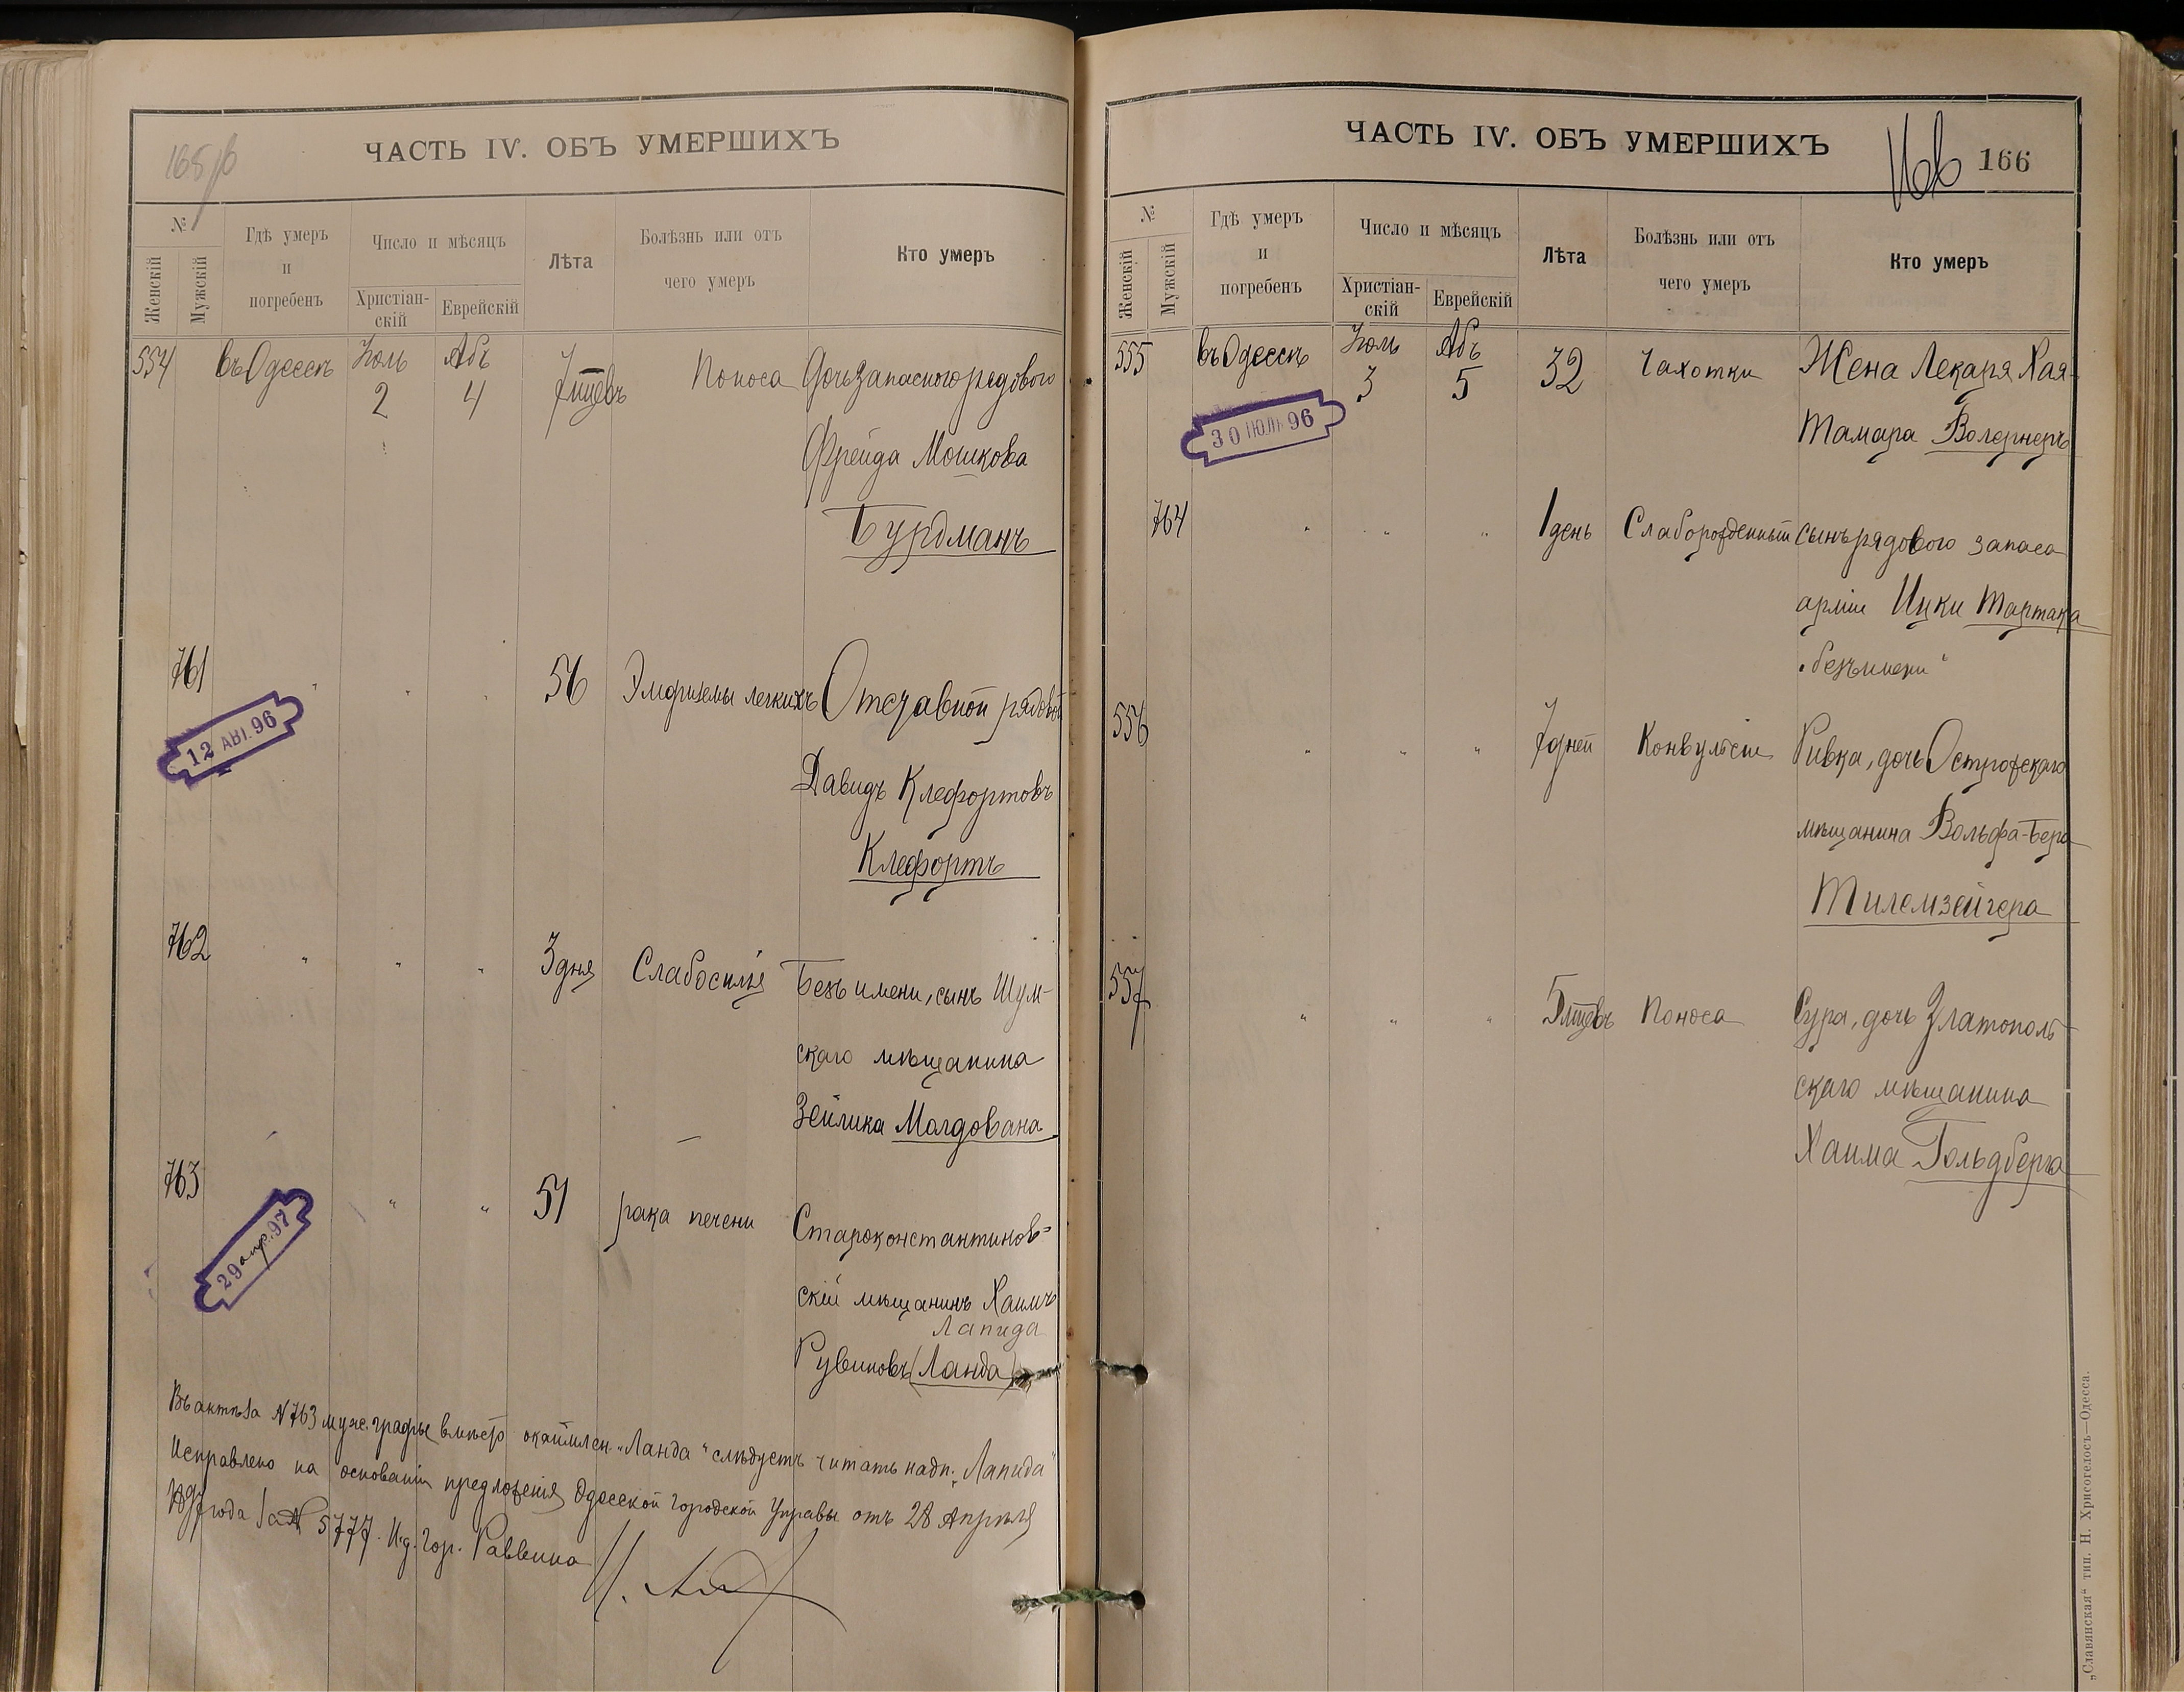 165 об
ЧАСТЬ IV. ОБЪ УМЕРШИХЪ
№
Женскій
Мужскій
Гдѣ умеръ
и
погребенъ
Число и мѣсяцъ
Христіан-
скій
Еврейскій
Лѣта
Болѣзнь или отъ
чего умеръ
Кто умеръ
554 въ Одессѣ Іюль 2 Абъ 4 7 мцевъ Поноса Дочь запасного рядового
Фрейда Мошкова
Бурдманъ
761 " " " 56 Эмфиземы легкихъ Отставной рядовой
12 АВГ. 96
Давидъ Клефортовъ
Клефортъ
762 " " " 3 дня Слабосилія Безъ имени, сынъ Шум-
скаго мѣщанина
Зейлика Молдована
763 " " 51 рака печени Староконстантинов=
29 апр. 97
скій мѣщанинъ Хаимъ
Лапида
Рувиновъ (Ланда)
Въ актѣ за N 763 муж. графы вмѣсто окаймлен. „Ланда" слѣдуетъ читать надп. „Лапида"
Исправлено на основаніи предложенія Одесской Городской Управы отъ 28 Апрѣля
1897 года за N 5777. И.д. Гор. Раввина
ЧАСТЬ IV. ОБЪ УМЕРШИХЪ
166
166
№
Женскій
Мужскій
Гдѣ умеръ
и
погребенъ
Число и мѣсяцъ
Христіан-
скій
Еврейскій
Лѣта
Болѣзнь или отъ
чего умеръ
Кто умеръ
555 въ Одессѣ Іюль 3 Абъ 5 32 Чахотки Жена Лекаря Хая-
30 ІЮЛЬ 96
Тамара Волернеръ
764 " " " 1 день Слаборожденный сынъ рядового запаса
арміи Ицки Тартака
„безъ имени"
556 " " " 7 дней Конвульсіи Ривка, дочь Острожскаго
мѣщанина Вольфа-Бера
Тилемзейгера
557 " " " 5 мцевъ Поноса Сура, дочь Златополь-
скаго мѣщанина
Хаима Гольдберга
„Славянская" тип. Н. Хрисогелосъ—Одесса.